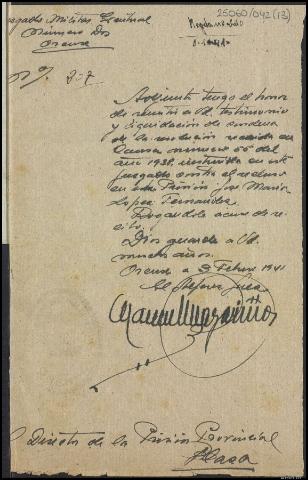 25060/042 (13)
Juzgado Militar Eventual
Número Dos
Orense
Nº 207
Adjunto tengo el honor
de remitir a Vd. testimonio
y liquidación de condena
de la resolución recaida en
Causa número 66 del
año 1938, instruida en este
juzgado contra el recluso
en esa Prisión José María
López Fernández
Rogándole acuse de re-
cibo.
Dios guarde a Vd.
muchos años.
Orense a 3 Febrero 1941
El Alférez Juez
Director de la Prisión Provincial
Plaza